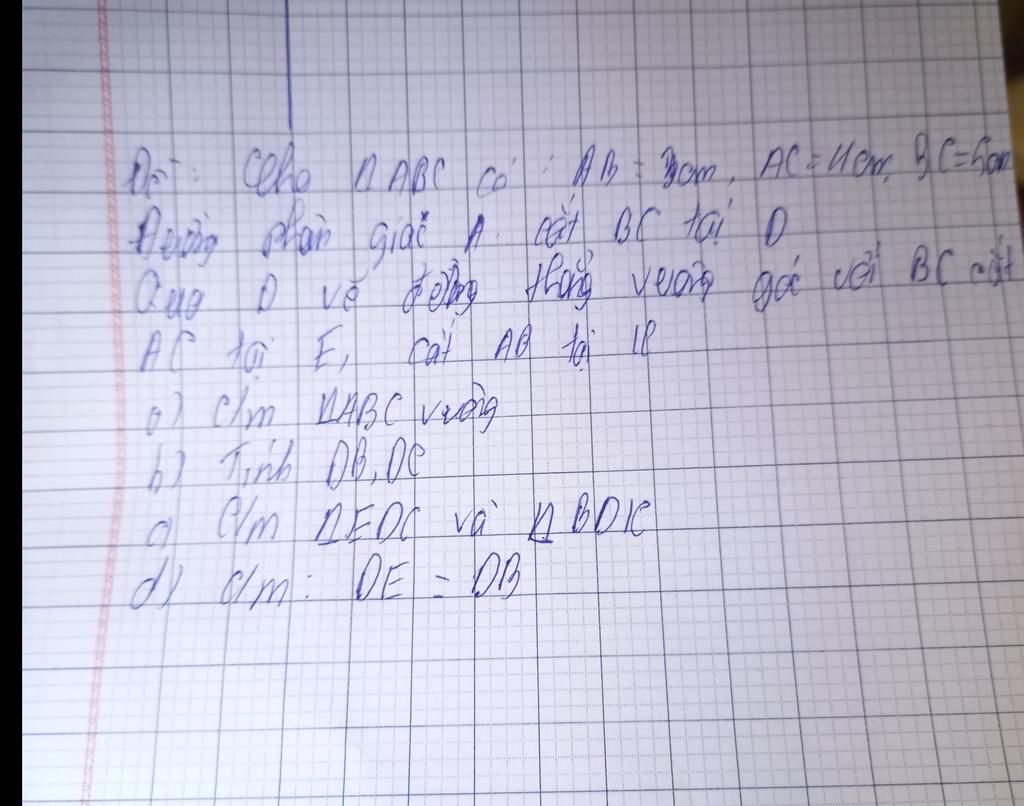 Đề: Cho ΔABC có: AB = 3cm, AC = 4cm, BC = 5cm
Đường phân giác A cắt BC tại D
Qua D vẽ đường thẳng vuông góc với BC cắt
AC tại E, cắt AB tại K
a) c/m ΔABC vuông
b) Tính DB, DC
c) C/m ΔEDC và ΔBDK
d) c/m: DE = DB